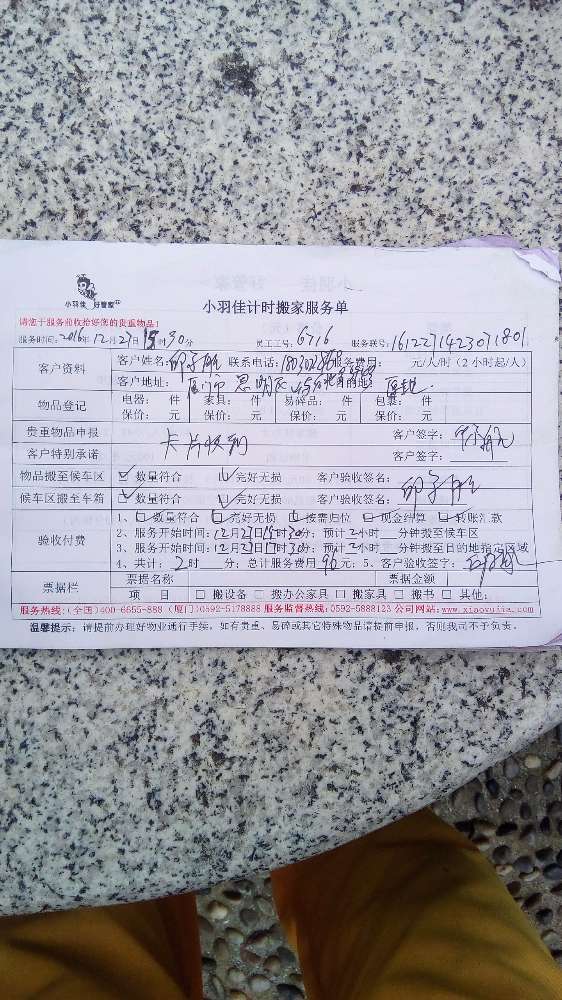 小羽佳 好管家
小羽佳计时搬家服务单
请您于服务前收拾好您的贵重物品!
服务时间:2016年12月27日15时30分 员工工号:6716 服务联号:1612271423031801
客户资料 客户姓名: 联系电话: 服务费用: 元/人/时(2小时起/人)
客户地址:厦门市思明区
物品登记 电器: 件 家具: 件 易碎品: 件 包裹: 件
保价: 元 保价: 元 保价: 元 保价: 元
贵重物品申报 卡片收到 客户签字:
客户特别承诺 客户签字:
物品搬至候车区 ☑数量符合 ☑完好无损 客户验收签名:
候车区搬至车箱 ☑数量符合 ☑完好无损 客户验收签名:
验收付费 1、☑数量符合 ☑完好无损 ☑按需归位 ☑现金结算 ☑转账汇款
2、服务开始时间:12月27日15时30分;预计2小时__分钟搬至候车区
3、服务开始时间:12月27日17时30分;预计2小时__分钟搬至目的地指定区域
4、共计:2时__分;总计服务费用96元;5、客户验收签字:
票据栏 票据名称 票据金额
项 目 □搬设备 □搬办公家具 □搬家具 □搬书 □其他:
服务热线:(全国)400-6655-888 (厦门)0592-5178888 服务监督热线:0592-5888123 公司网站:www.xiaoyujia.com
温馨提示:请提前办理好物业通行手续,如有贵重、易碎或其它特殊物品请提前申报,否则我司不予负责。